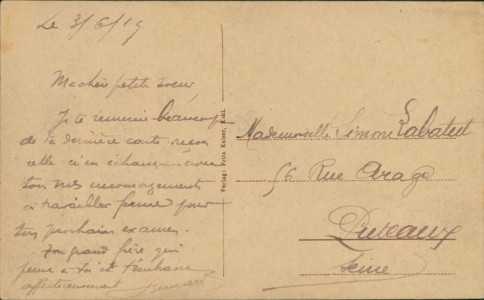 Le 3/6/19
Ma chère petite sœur,
Je te remercie beaucoup
de ta dernière carte reçois
celle ci en échange avec
tous mes encouragements
à travailler ferme pour
ton prochain examen.
Ton grand frère qui
pense à toi et t'embrasse
affectueusement
Verlag: Fritz Kaiser, Kehl.
Mademoiselle Simone Labatut
56 Rue Arago
Puteaux
Seine